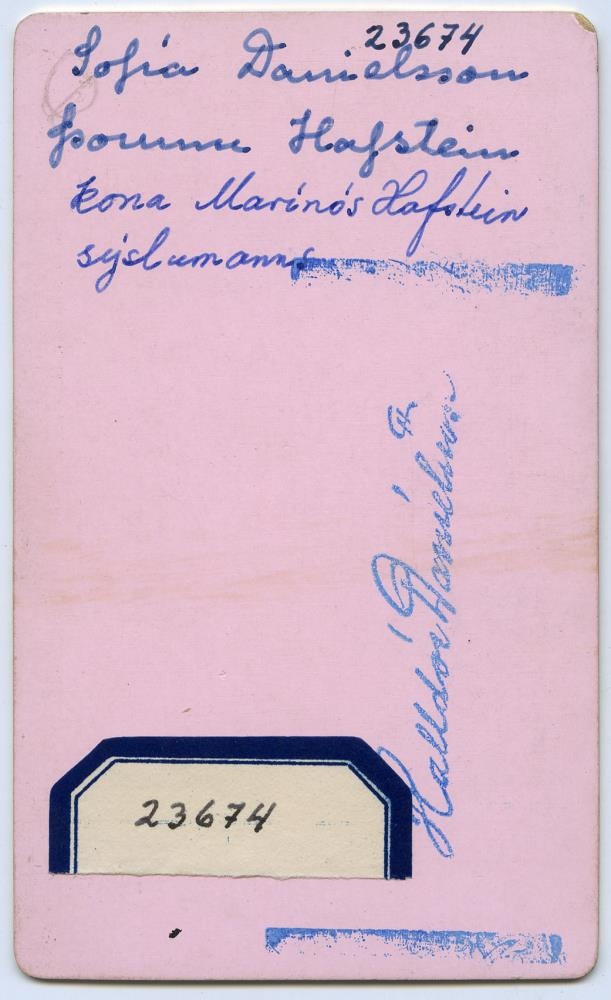 23674
Sofia Danielsson
Þórunn Hafstein
kona Marínós Hafstein
sýslumanns
Halldór Daníelsson
23674